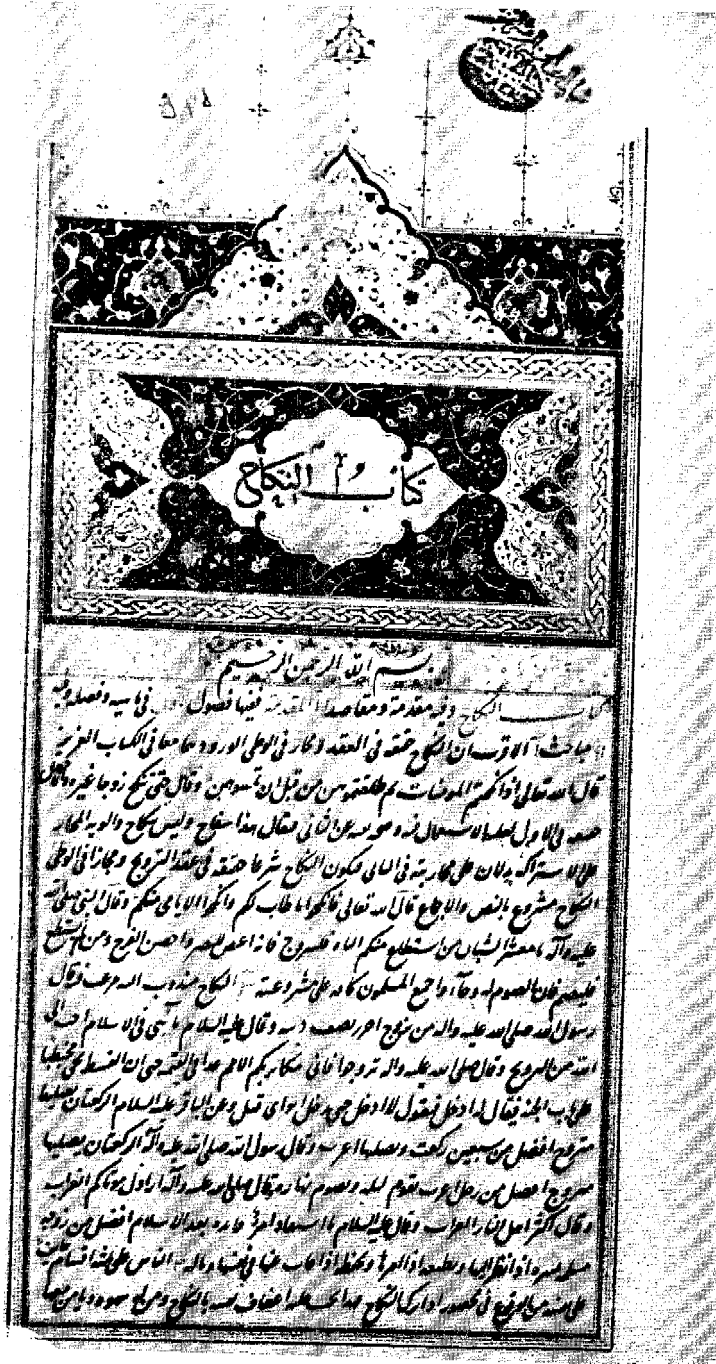 كتاب النكاح
بسم الله الرحمن الرحيم
كتاب النكاح وفيه مقدمة ومقاصد المقدمة ففيها فصول في ماهيته وفضله وفيه
مباحث الاقرب ان النكاح حقيقة في العقد ومجاز في الوطى لورودهما معا في الكتاب العزيز
قال الله تعالى اذا نكحتم المؤمنات ثم طلقتموهن من قبل ان تمسوهن وقال حتى تنكح زوجا غيره
حقيقة في الاول لغلبة الاستعمال فيه عن الثانى فيقال هذا سفاح وليس بنكاح
على الاشتراك يدلان على مجازيته في الثانى فيكون النكاح شرعا حقيقة في عقد التزويج ومجازا في الوطى
النكاح مشروع بالنص والاجماع قال الله تعالى فانكحوا ما طاب لكم وانكحوا الايامى منكم وقال النبى صلى الله
عليه وآله يا معشر الشبان من استطاع منكم الباه فليتزوج فانه اغض للبصر واحصن للفرج ومن لم يستطع
فليصم فان الصوم له وجاء واجمع المسلمون كافة على مشروعيته النكاح مندوب اليه مرغب فيه قال
رسول الله صلى الله عليه واله من تزوج احرز نصف دينه وقال عليه السلام ما شى في الاسلام احب الى
الله من التزويج وقال صلى الله عليه واله تزوجوا فانى مكاثر بكم الامم غدا في القيمة حتى ان السقط يجى محبنطيا
على باب الجنة فيقال له ادخل فيقول لا ادخل حتى يدخل ابواى قبلى وعن الباقر عليه السلام الركعتان يصليهما
متزوج افضل من سبعين ركعة يصليها اعزب وقال رسول الله صلى الله عليه وآله الركعتان يصليهما
متزوج افضل من رجل عزب يقوم ليله ويصوم نهاره وقال صلى الله عليه وآله اراذل موتاكم العزاب
وقال اكثر اهل النار العزاب وقال عليه السلام ما استفاد امرؤ فايدة بعد الاسلام افضل من زوجة
مسلمة تسره اذا نظر اليها وتطيعه اذا امرها وتحفظه اذا غاب عنها في نفسها وماله الناس على ثلثة اقسام
على نفسه من الوقوع في محظور ان ترك النكاح بالنكاح